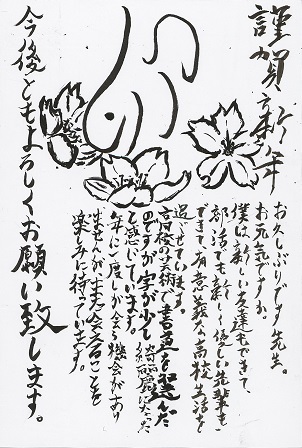 謹賀新年
お久しぶりです先生。
お元気ですか。
僕は新しい友達もできて、
部活でも新しく優しい先輩も
できて、有意義な高校生活を
過ごせています。
高校の芸術で書道を選んだ
のですが字が少し綺麗になった
と感じています。
年に一度しか会う機会があり
ませんがまた会えることを
楽しみに待っています。
今後ともよろしくお願い致します。